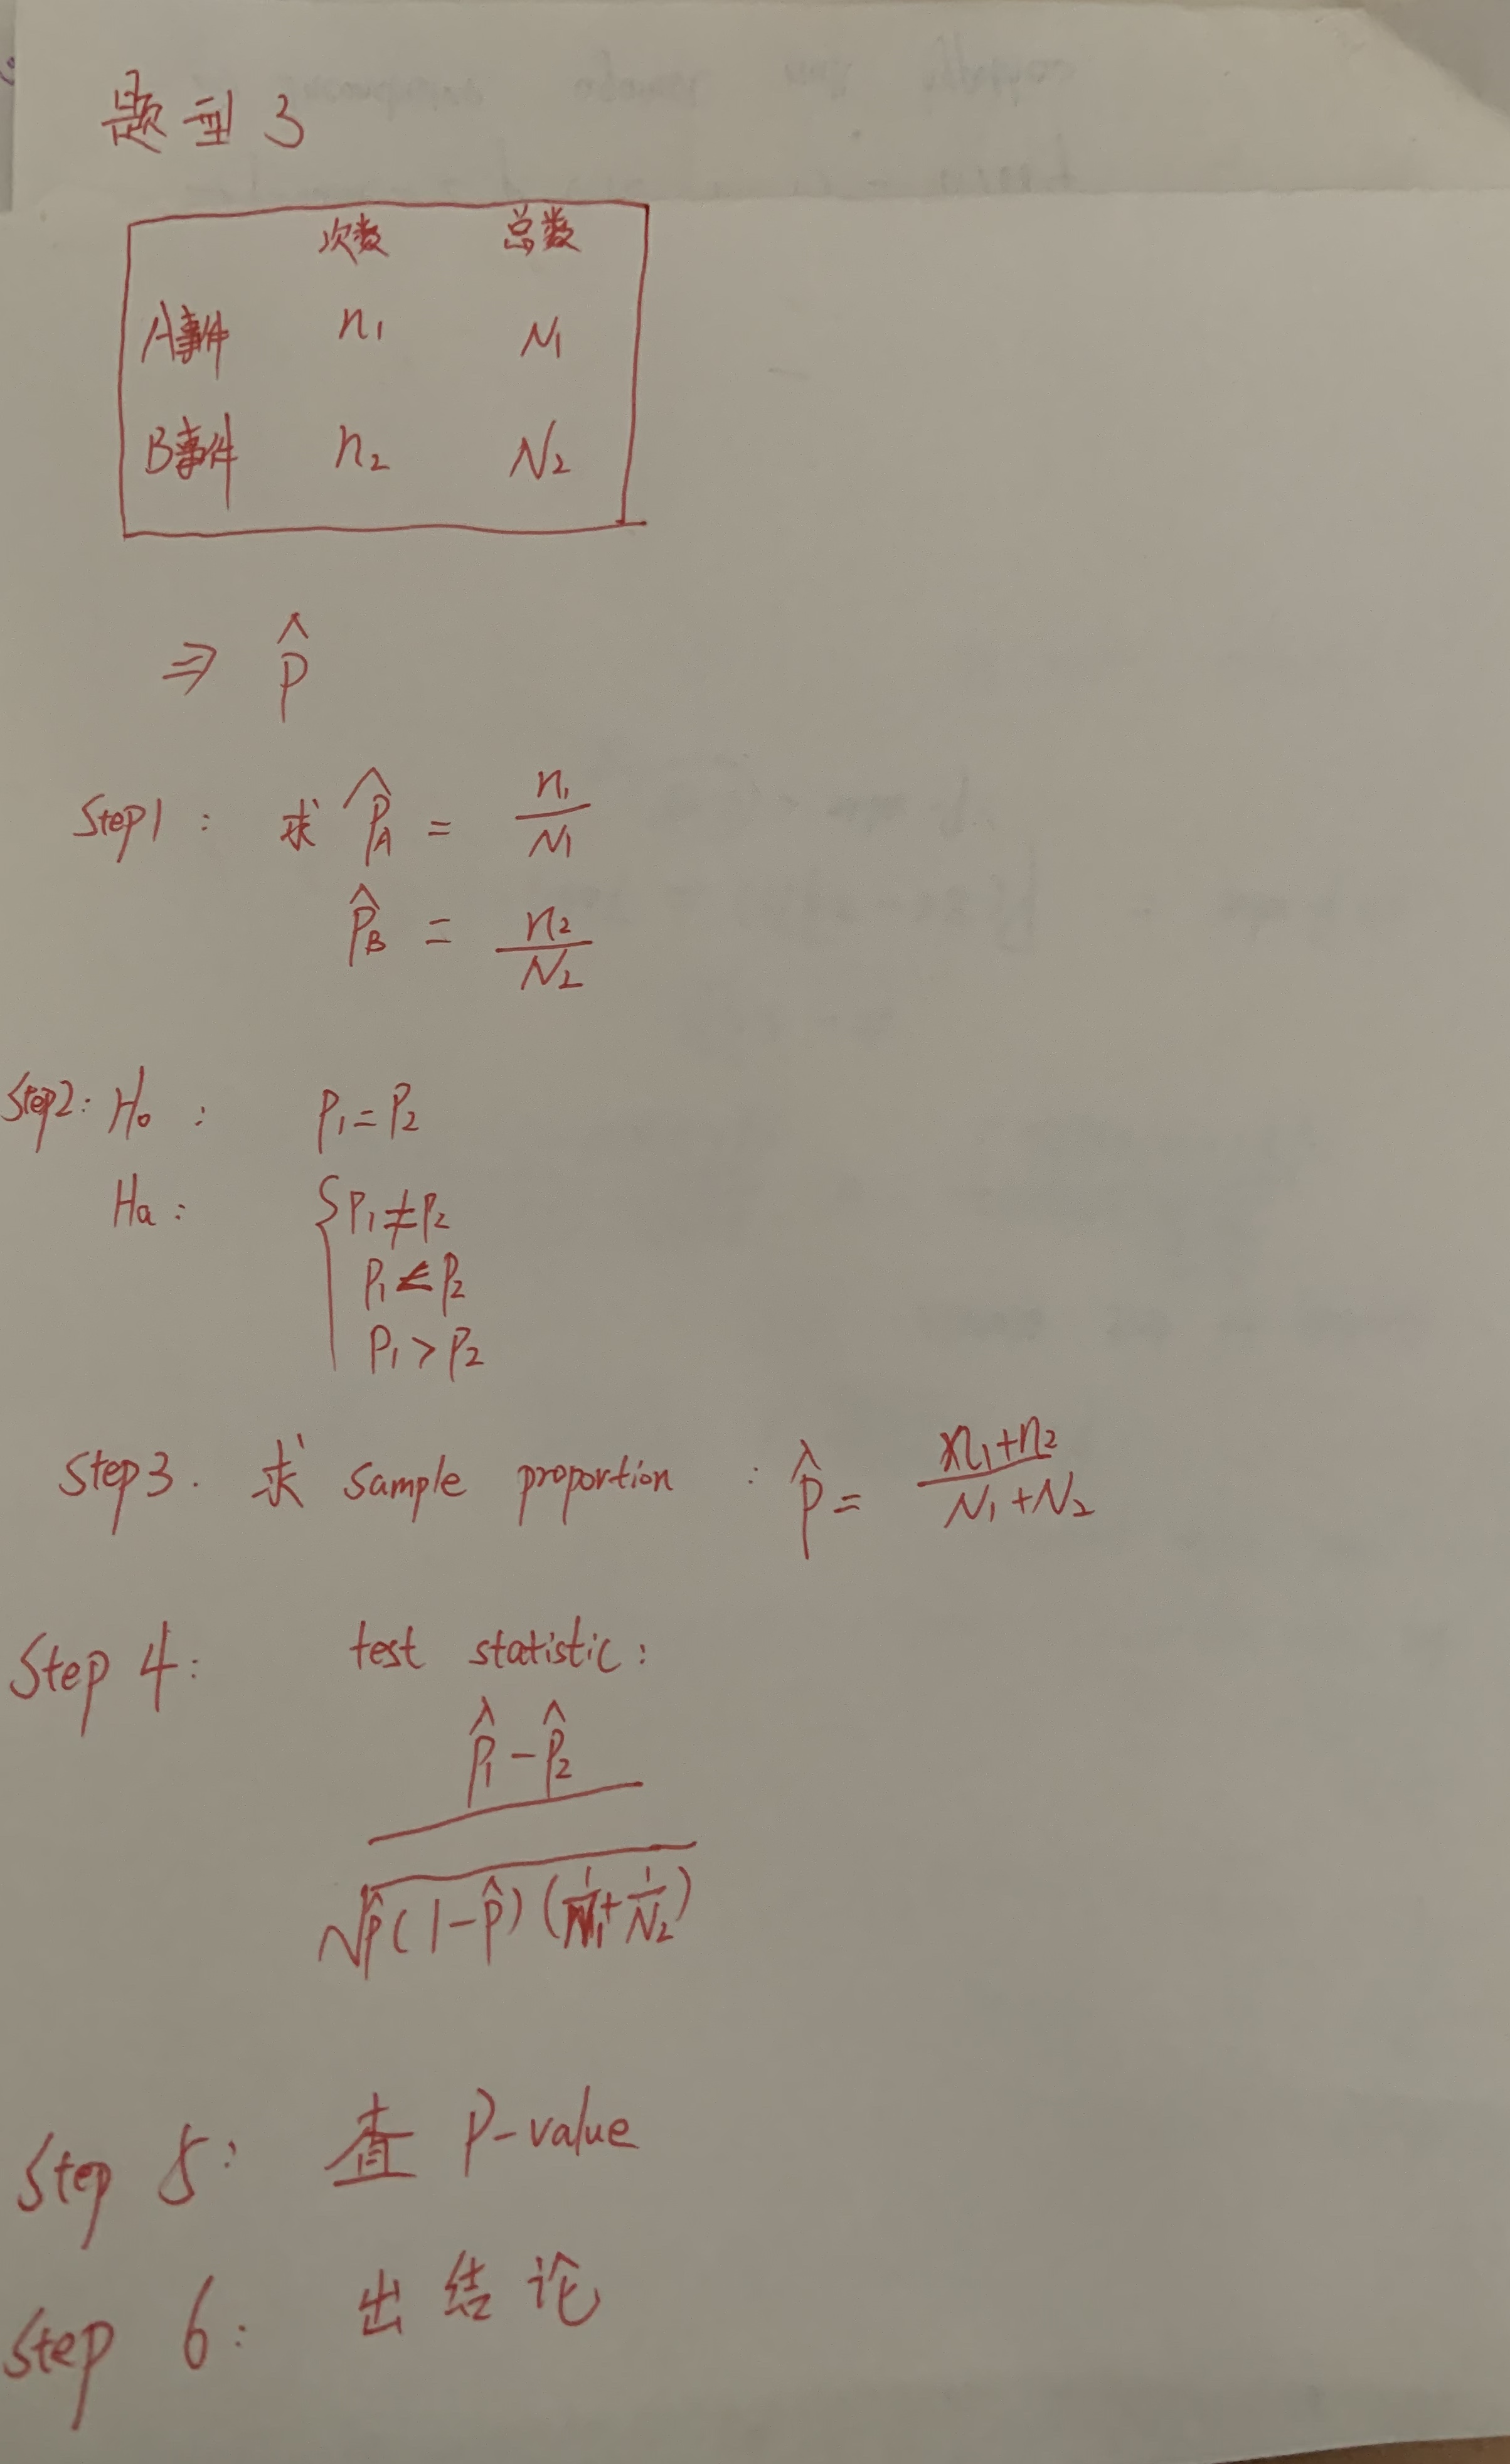 题型 3
次数 总数
A事件 n₁ N₁
B事件 n₂ N₂
⇒ p̂
Step1: 求 p̂_A = n₁/N₁
p̂_B = n₂/N₂
Step2: H₀: P₁=P₂
Ha: { P₁≠P₂
P₁<P₂
P₁>P₂
Step3. 求 sample proportion : p̂ = (n₁+n₂)/(N₁+N₂)
Step 4: test statistic:
(p̂₁-p̂₂)/√(p̂(1-p̂)(1/N₁+1/N₂))
Step 5: 查 P-value
Step 6: 出结论